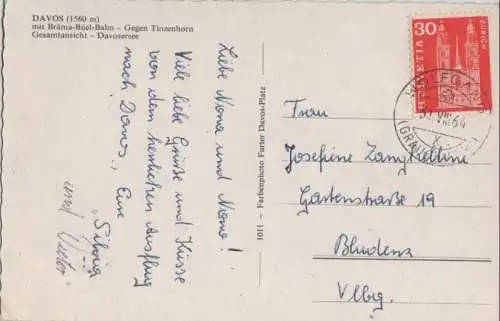 DAVOS (1560 m)
mit Bräma-Büel-Bahn – Gegen Tinzenhorn
Gesamtansicht – Davosersee
Liebe Nona und Nono!
Viele liebe Grüsse und Küsse
von dem herrlichen Ausflug
nach Davos, Eure
Silvia
und
1011 – Farbenphoto Furter Davos-Platz
30
HELVETIA
ZÜRICH
VIII 64
Frau
Josefine Zangkellini
Gartenstraße 19
Bludenz
Vlbg.